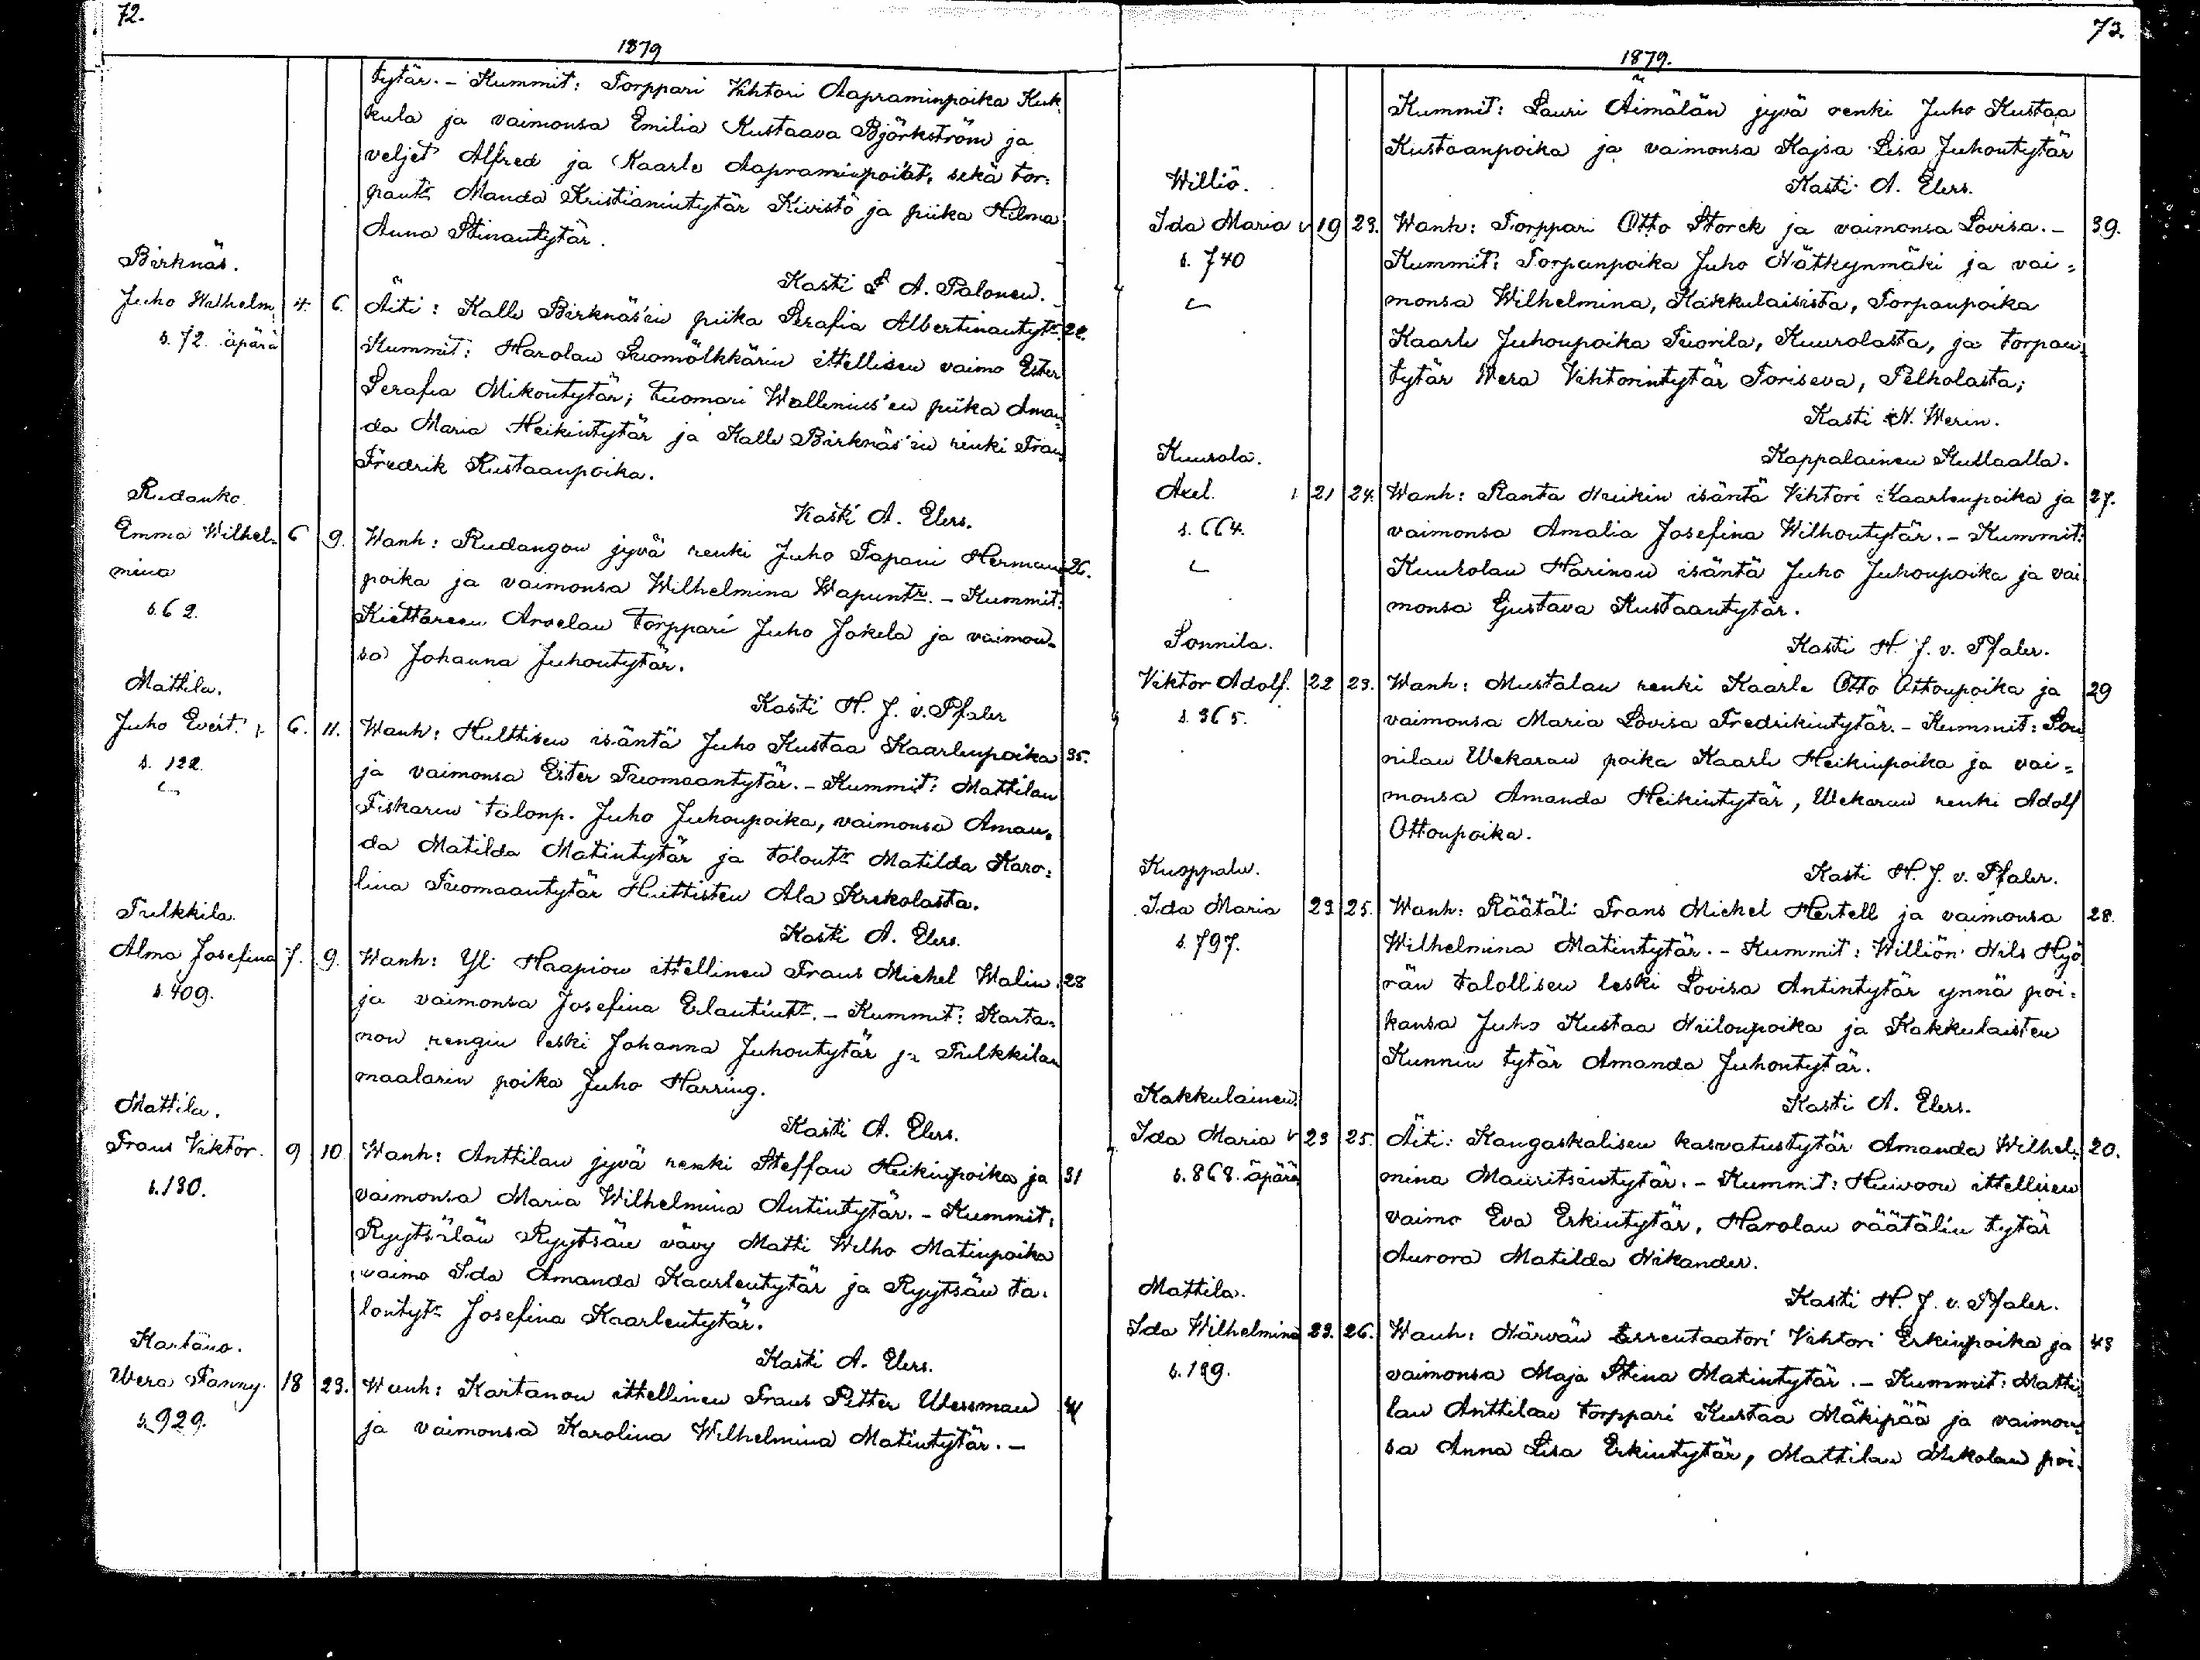 72.
1879
tytär. – Kummit: Torppari Vihtori Aapraminpoika Kuk-
kula ja vaimonsa Emilia Kustaava Björkström ja
veljet Alfred ja Kaarle Aapraminpoikat, sekä tor-
pantr Manda Kristianintytär Kivistö ja piika Hilma
Anna Stinantytär.
Kasti A. Palonen.
Birknäs.
Juho Wilhelm 4. 6. Äiti: Kalle Birknäs'in piika Serafia Albertinantytr 22.
s. 72. äpärä
Kummit: Harolan Suomölkkärin ittellisen vaimo Ester
Serafia Mikontytär; tuomari Wallenius'en piika Aman-
da Maria Heikintytär ja Kalle Birknäs'in renki Frans
Fredrik Kustaanpoika.
Kasti A. Elers.
Rudanko.
Emma Wilhel- 6 9. Wanh: Rudangon jyvä renki Juho Tapani Herman- 26.
mina
s. 62.
poika ja vaimonsa Wilhelmina Wapuntr. – Kummit:
Kiettäreen Arvelan torppari Juho Jokela ja vaimon-
sa Johanna Juhontytär.
Kasti H. J. v. Pfaler
Mattila.
Juho Evert. 6. 11. Wanh: Hulttisen isäntä Juho Kustaa Kaarlenpoika 35.
s. 122.
ja vaimonsa Ester Tuomaantytär. – Kummit: Mattilan
Fiskarin talonp. Juho Juhonpoika, vaimonsa Aman-
da Matilda Matintytär ja talontr Matilda Karo-
lina Tuomaantytär Huittisten Ala Krekolasta.
Kasti A. Elers.
Tulkkila.
Alma Josefina 7. 9. Wanh: Yli Haapion ittellinen Frans Michel Walin 28
s. 409.
ja vaimonsa Josefina Erlantintr. – Kummit: Karta-
non rengin leski Johanna Juhontytär ja Tulkkilan
maalarin poika Juho Harring.
Kasti A. Elers.
Mattila.
Frans Viktor. 9 10 Wanh: Anttilan jyvä renki Steffan Heikinpoika ja 31
s. 130.
vaimonsa Maria Wilhelmina Antintytär. – Kummit:
Ryytsälän Ryytsän vävy Matti Wilho Matinpoika
vaimo Ida Amanda Kaarlentytär ja Ryytsän ta-
lontytr Josefina Kaarlentytär.
Kasti A. Elers.
Kartano.
Wera Fanny. 18 23. Wanh: Kartanon ittellinen Frans Petter Wessman 41
s. 929.
ja vaimonsa Karolina Wilhelmina Matintytär. –
73.
1879.
Kummit: Lauri Äimälän jyvä renki Juho Kustaa
Kustaanpoika ja vaimonsa Kajsa Lisa Juhontytär
Kasti A. Elers.
Williö.
Ida Maria 19 23. Wanh: Torppari Otto Storck ja vaimonsa Lovisa. – 39.
s. 740
Kummit: Torpanpoika Juho Nätkynmäki ja vai-
monsa Wilhelmina, Kakkulaisista, Torpanpoika
Kaarle Juhonpoika Tuorila, Kuurolasta, ja torpan-
tytär Wera Vihtorintytär Toriseva, Pelholasta;
Kasti N. Werin.
Kappalainen Kullaalla.
Kuurola.
Axel. 21 24. Wanh: Ranta Heikin isäntä Vihtori Kaarlenpoika ja 27.
s. 664.
vaimonsa Amalia Josefina Wilhontytär. – Kummit:
Kuurolan Harinon isäntä Juho Juhonpoika ja vai-
monsa Gustava Kustaantytär.
Kasti H. J. v. Pfaler.
Sonnila.
Viktor Adolf. 22 23. Wanh: Mustalan renki Kaarle Otto Ottonpoika ja 29
s. 365.
vaimonsa Maria Lovisa Fredrikintytär. – Kummit: Son-
nilan Wekaran poika Kaarle Heikinpoika ja vai-
monsa Amanda Heikintytär, Wekaran renki Adolf
Ottonpoika.
Kasti H. J. v. Pfaler.
Kuoppala.
Ida Maria 23 25. Wanh: Räätäli Frans Michel Hertell ja vaimonsa 28.
s. 797.
Wilhelmina Matintytär. – Kummit: Williön Nils Hyö-
rän talollisen leski Lovisa Antintytär ynnä poi-
kansa Juho Kustaa Niilonpoika ja Kakkulaisten
Kunnin tytär Amanda Juhontytär.
Kasti A. Elers.
Kakkulainen.
Ida Maria 23 25. Äiti: Kangaskalisen kasvatustytär Amanda Wilhel- 20.
s. 868. äpärä
mina Mauritsintytär. – Kummit: Huivoon ittellisen
vaimo Eva Erkintytär, Harolan räätälin tytär
Aurora Matilda Nikander.
Kasti H. J. v. Pfaler.
Mattila.
Ida Wilhelmina 23. 26. Wanh: Närvän arrentaatori Vihtori Erkinpoika ja 43
s. 139.
vaimonsa Maja Stina Matintytär. – Kummit: Matti-
lan Anttilan torppari Kustaa Mäkipää ja vaimon-
sa Anna Lisa Erkintytär, Mattilan Mikolan poi-